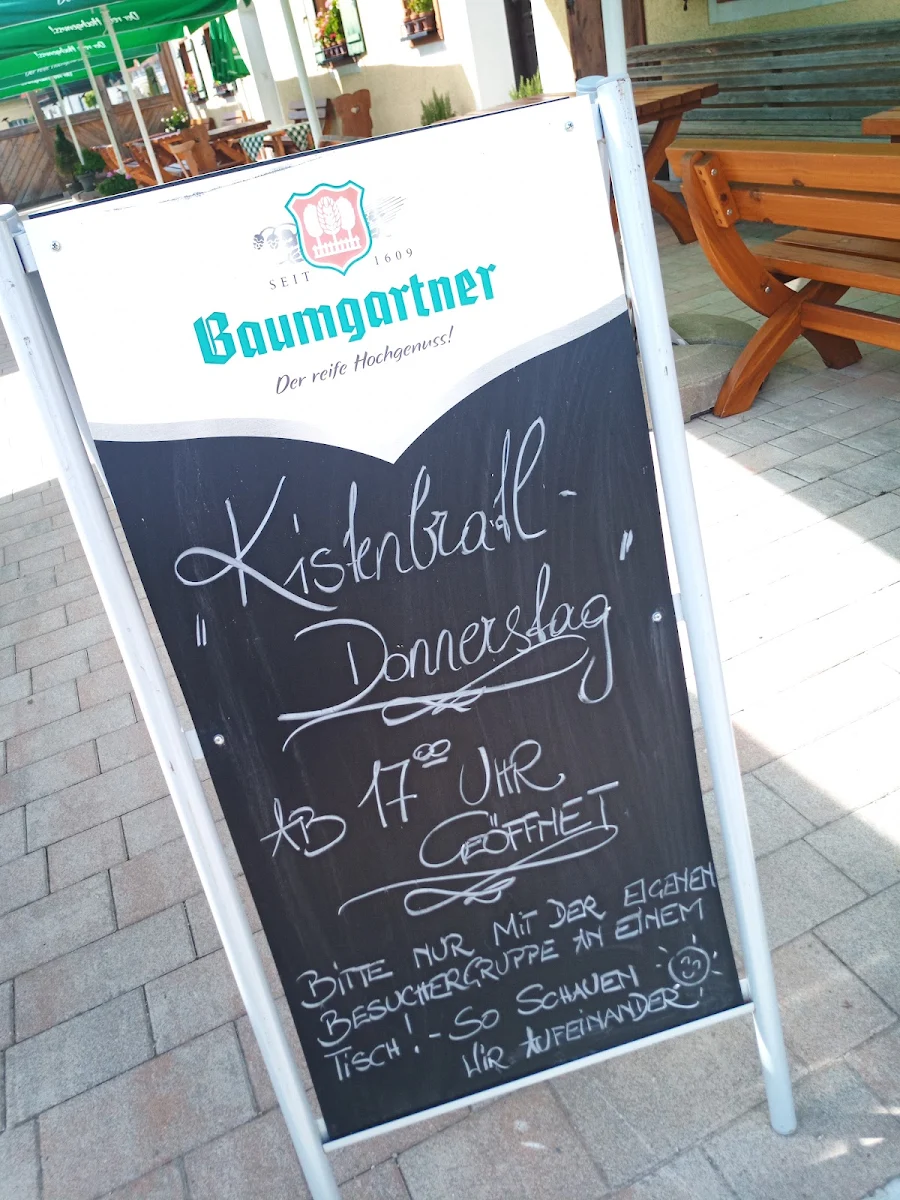 Der reife Hochgenuss!
SEIT 1609
Baumgartner
Der reife Hochgenuss!
Kistenbratl -
"Donnerstag"
AB 17⁰⁰ UHR
GEÖFFNET
BITTE NUR MIT DER EIGENEN
BESUCHERGRUPPE AN EINEM
TISCH! - SO SCHAUEN
WIR AUFEINANDER!